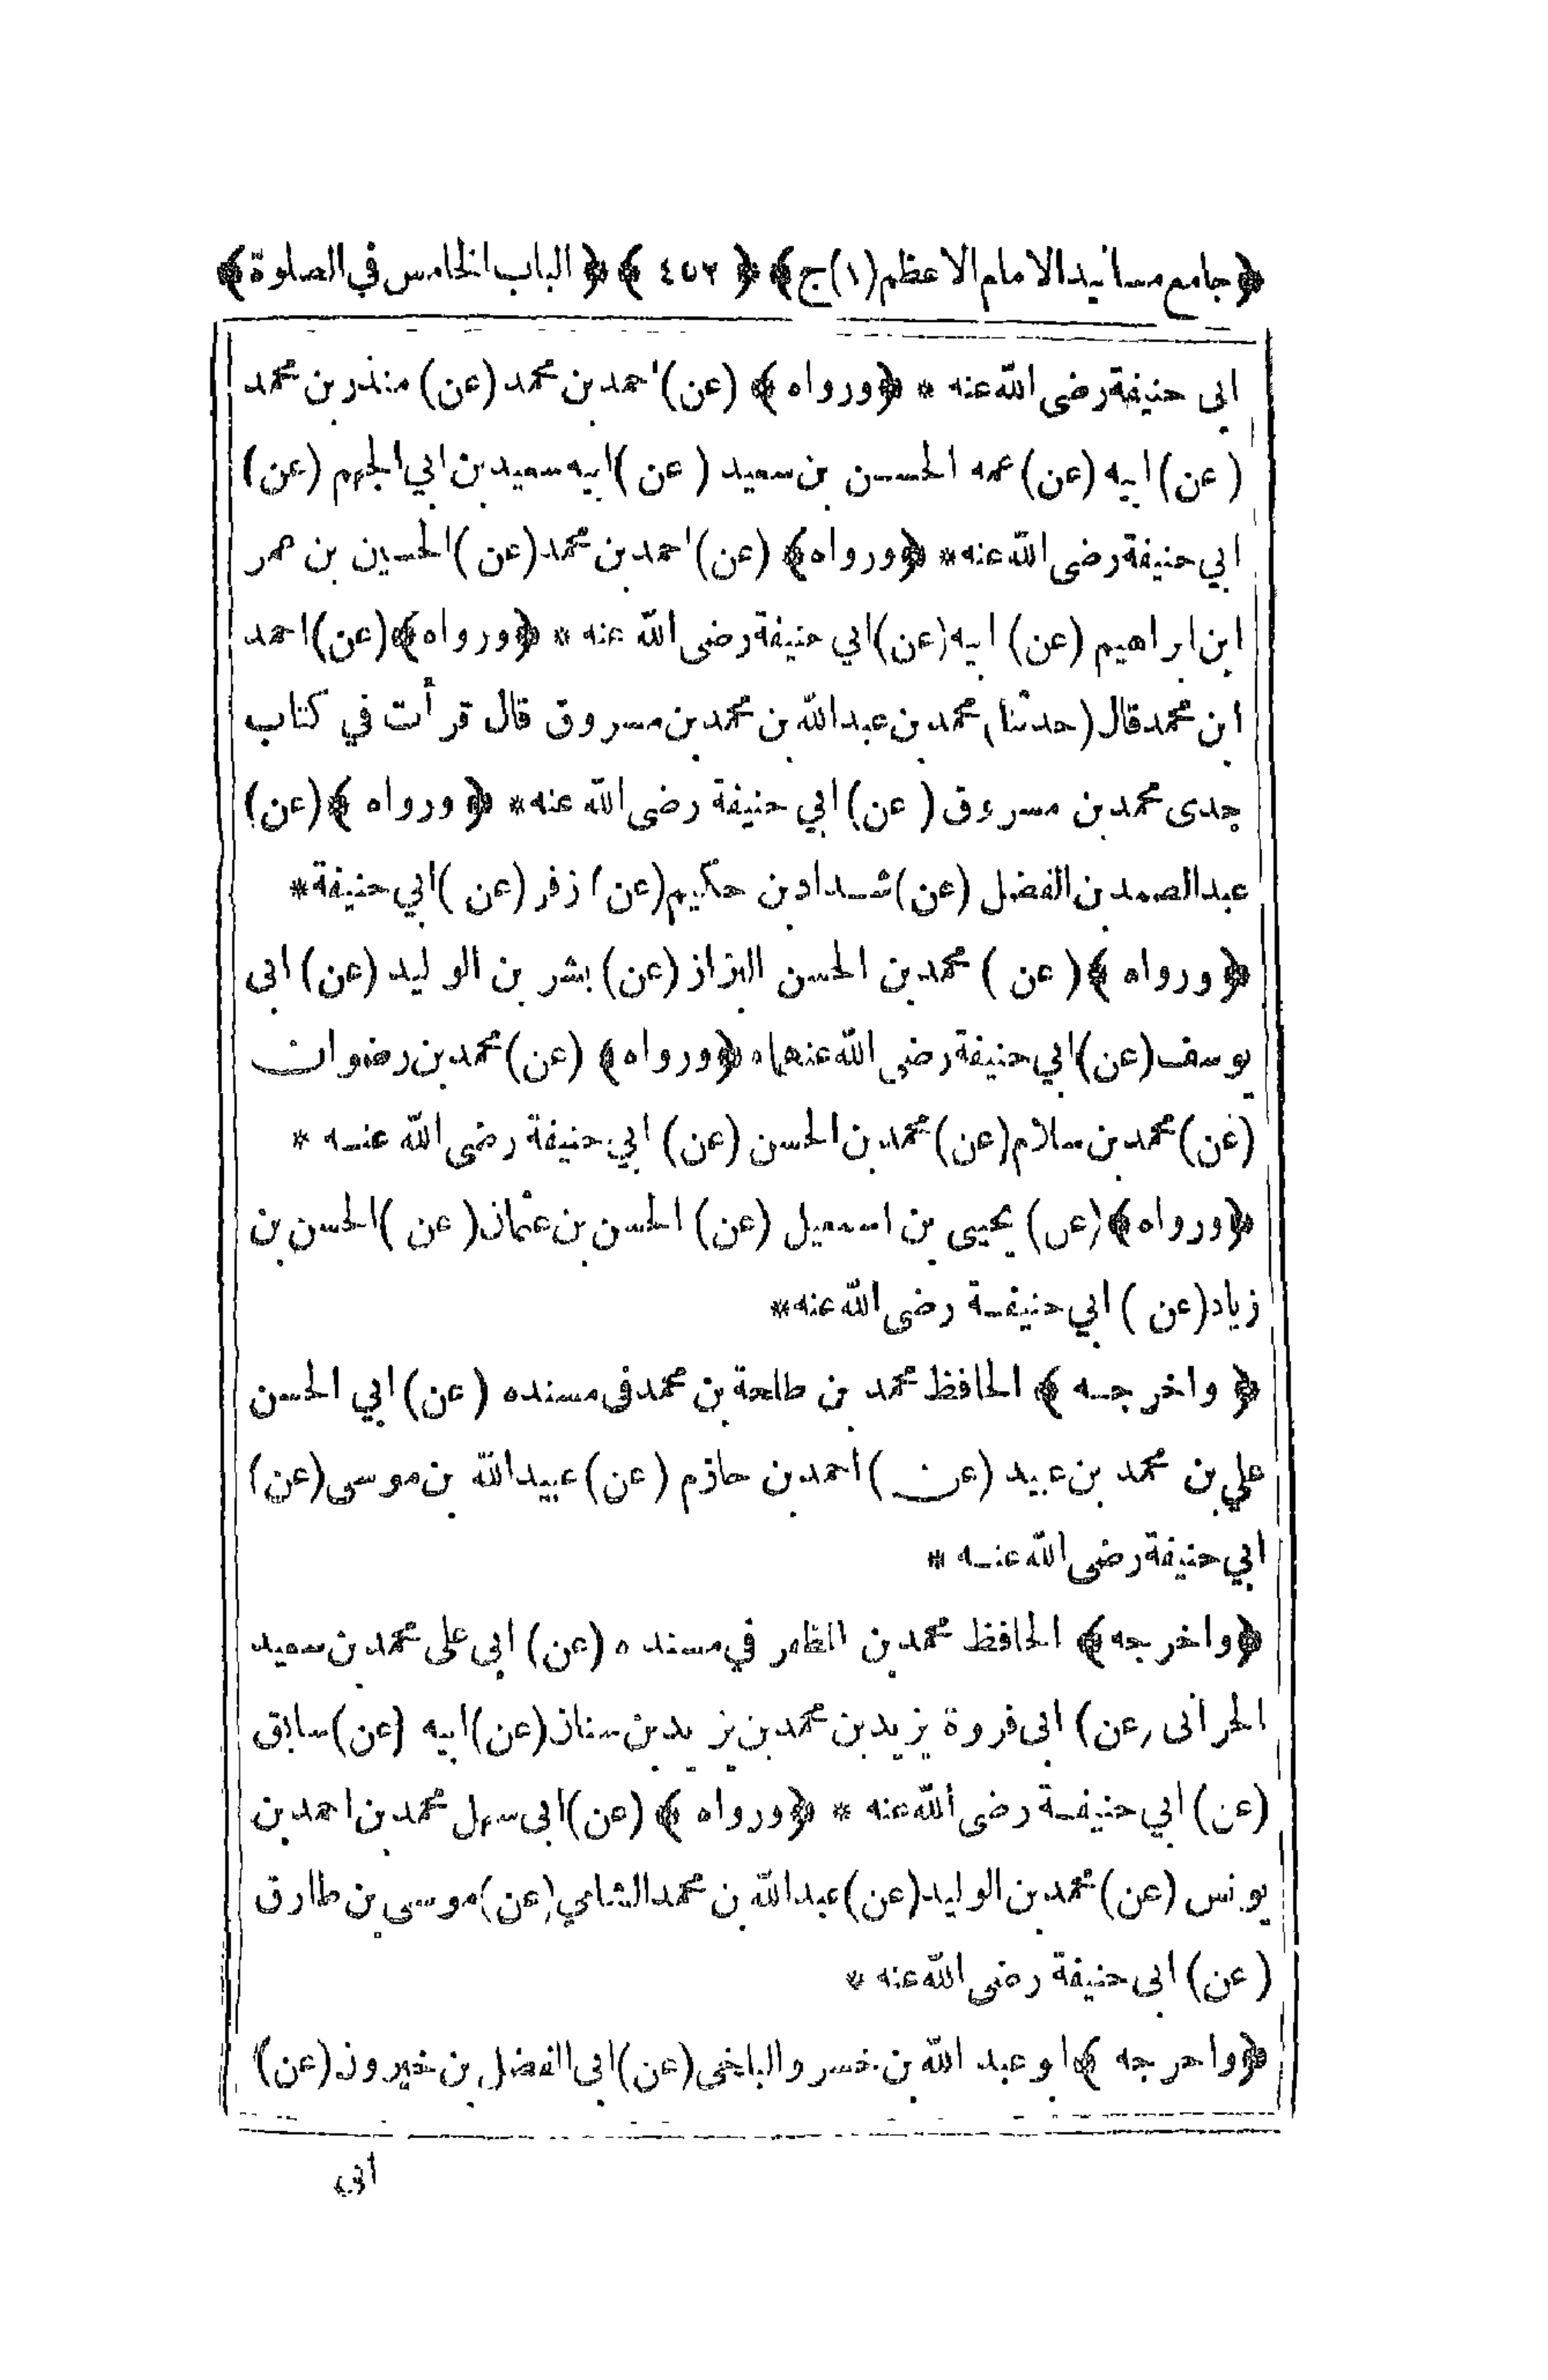 ﴿جامع مسانيد الامام الاعظم(١)ج﴾ ﴿ ٤٥٢ ﴾ ﴿ الباب الخامس في الصلوة﴾
ابى حنيفة رضى الله عنه * ﴿ورواه﴾ (عن) احمد بن محمد (عن) منذر بن محمد
(عن) ابيه (عن) عمه الحسن بن سعيد (عن) ابيه سعيد بن ابي الجهم (عن)
ابي حنيفة رضى الله عنه * ﴿ورواه﴾ (عن) احمد بن محمد (عن) الحسين بن عمر
ابن ابراهيم (عن) ابيه (عن) ابي حنيفة رضى الله عنه * ﴿ورواه﴾ (عن) احمد
ابن محمد قال (حدثنا) محمد بن عبدالله بن محمد بن مسروق قال قرأت في كتاب
جدى محمد بن مسروق (عن) ابي حنيفة رضى الله عنه * ﴿ورواه﴾ (عن)
عبدالصمد بن الفضل (عن) شداد بن حكيم (عن) زفر (عن) ابي حنيفة *
﴿ورواه﴾ (عن) محمد بن الحسن البزاز (عن) بشر بن الوليد (عن) ابى
يوسف (عن) ابي حنيفة رضى الله عنهما * ﴿ورواه﴾ (عن) محمد بن رضوان
(عن) محمد بن سلام (عن) محمد بن الحسن (عن) ابي حنيفة رضى الله عنه *
﴿ورواه﴾ (عن) يحيى بن اسمعيل (عن) الحسن بن عثمان (عن) الحسن بن
زياد (عن) ابي حنيفة رضى الله عنه *
﴿واخرجه﴾ الحافظ محمد بن طلحة بن محمد فى مسنده (عن) ابي الحسن
علي بن محمد بن عبيد (عن) احمد بن حازم (عن) عبيدالله بن موسى (عن)
ابي حنيفة رضى الله عنه *
﴿واخرجه﴾ الحافظ محمد بن المظفر في مسنده (عن) ابى على محمد بن سعيد
الحرانى (عن) ابى فروة يزيد بن محمد بن يزيد بن سنان (عن) ابيه (عن) سابق
(عن) ابي حنيفة رضى الله عنه * ﴿ورواه﴾ (عن) ابى سهل محمد بن احمد بن
يونس (عن) محمد بن الوليد (عن) عبدالله بن محمد الشامي (عن) موسى بن طارق
(عن) ابى حنيفة رضى الله عنه *
﴿واخرجه﴾ ابو عبد الله بن خسرو البلخى (عن) ابى الفضل بن خيرون (عن)
ابى